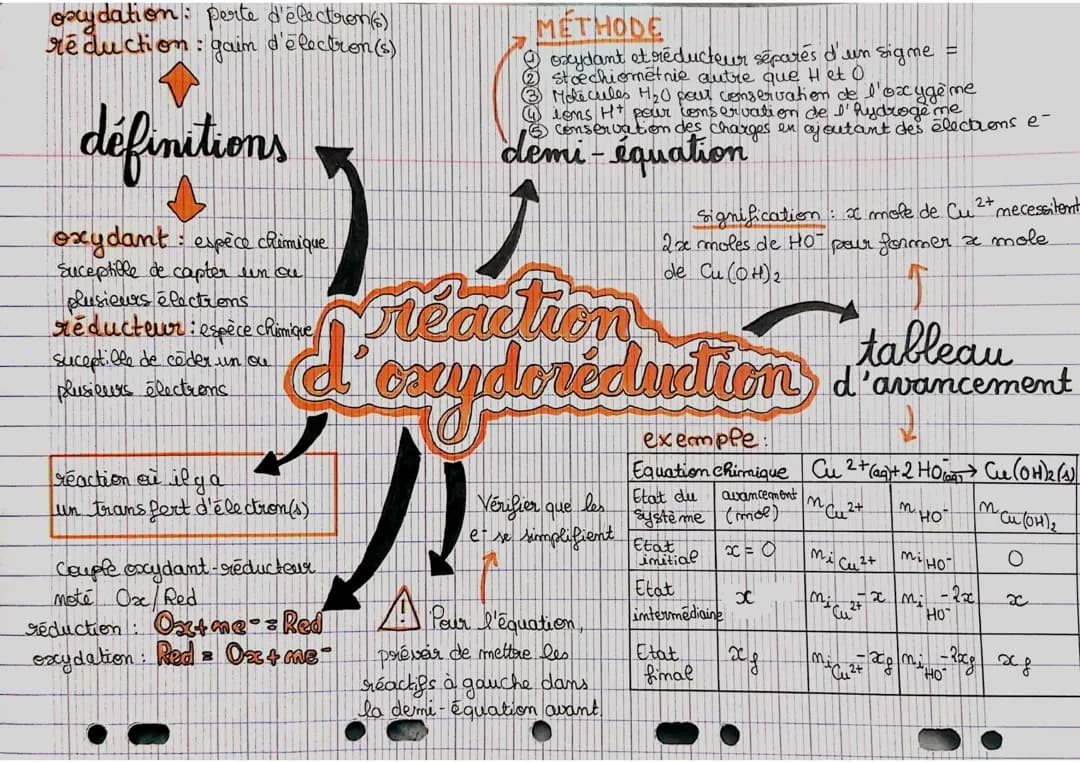 oxydation : perte d'électron(s)
réduction : gain d'électron(s)
définitions
oxydant : espèce chimique
suceptible de capter un ou
plusieurs électrons
réducteur : espèce chimique
suceptible de céder un ou
plusieurs électrons
MÉTHODE
① oxydant et réducteur séparés d'un signe =
② stoechiométrie autre que H et O
③ Molécules H₂O pour conservation de l'oxygène
④ ions H⁺ pour conservation de l'hydrogène
⑤ conservation des charges en ajoutant des électrons e-
demi-équation
signification : x mole de Cu²⁺ necessitent
2x moles de HO⁻ pour former x mole
de Cu(OH)₂
réaction
d'oxydoréduction
tableau
d'avancement
réaction où il y a
un transfert d'électron(s)
Couple oxydant-réducteur
noté Ox/Red
réduction : Ox + ne- = Red
oxydation : Red = Ox + ne-
Vérifier que les
e- se simplifient
! Pour l'équation,
prévoir de mettre les
réactifs à gauche dans
la demi-équation avant.
exemple :
Equation chimique Cu²⁺(aq) + 2 HO⁻(aq) → Cu(OH)₂(s)
Etat du système avancement (mol) nCu²⁺ nHO⁻ nCu(OH)₂
Etat initial x = 0 niCu²⁺ niHO⁻ 0
Etat intermédiaire x niCu²⁺ - x niHO⁻ - 2x x
Etat final xf niCu²⁺ - xf niHO⁻ - 2xf xf